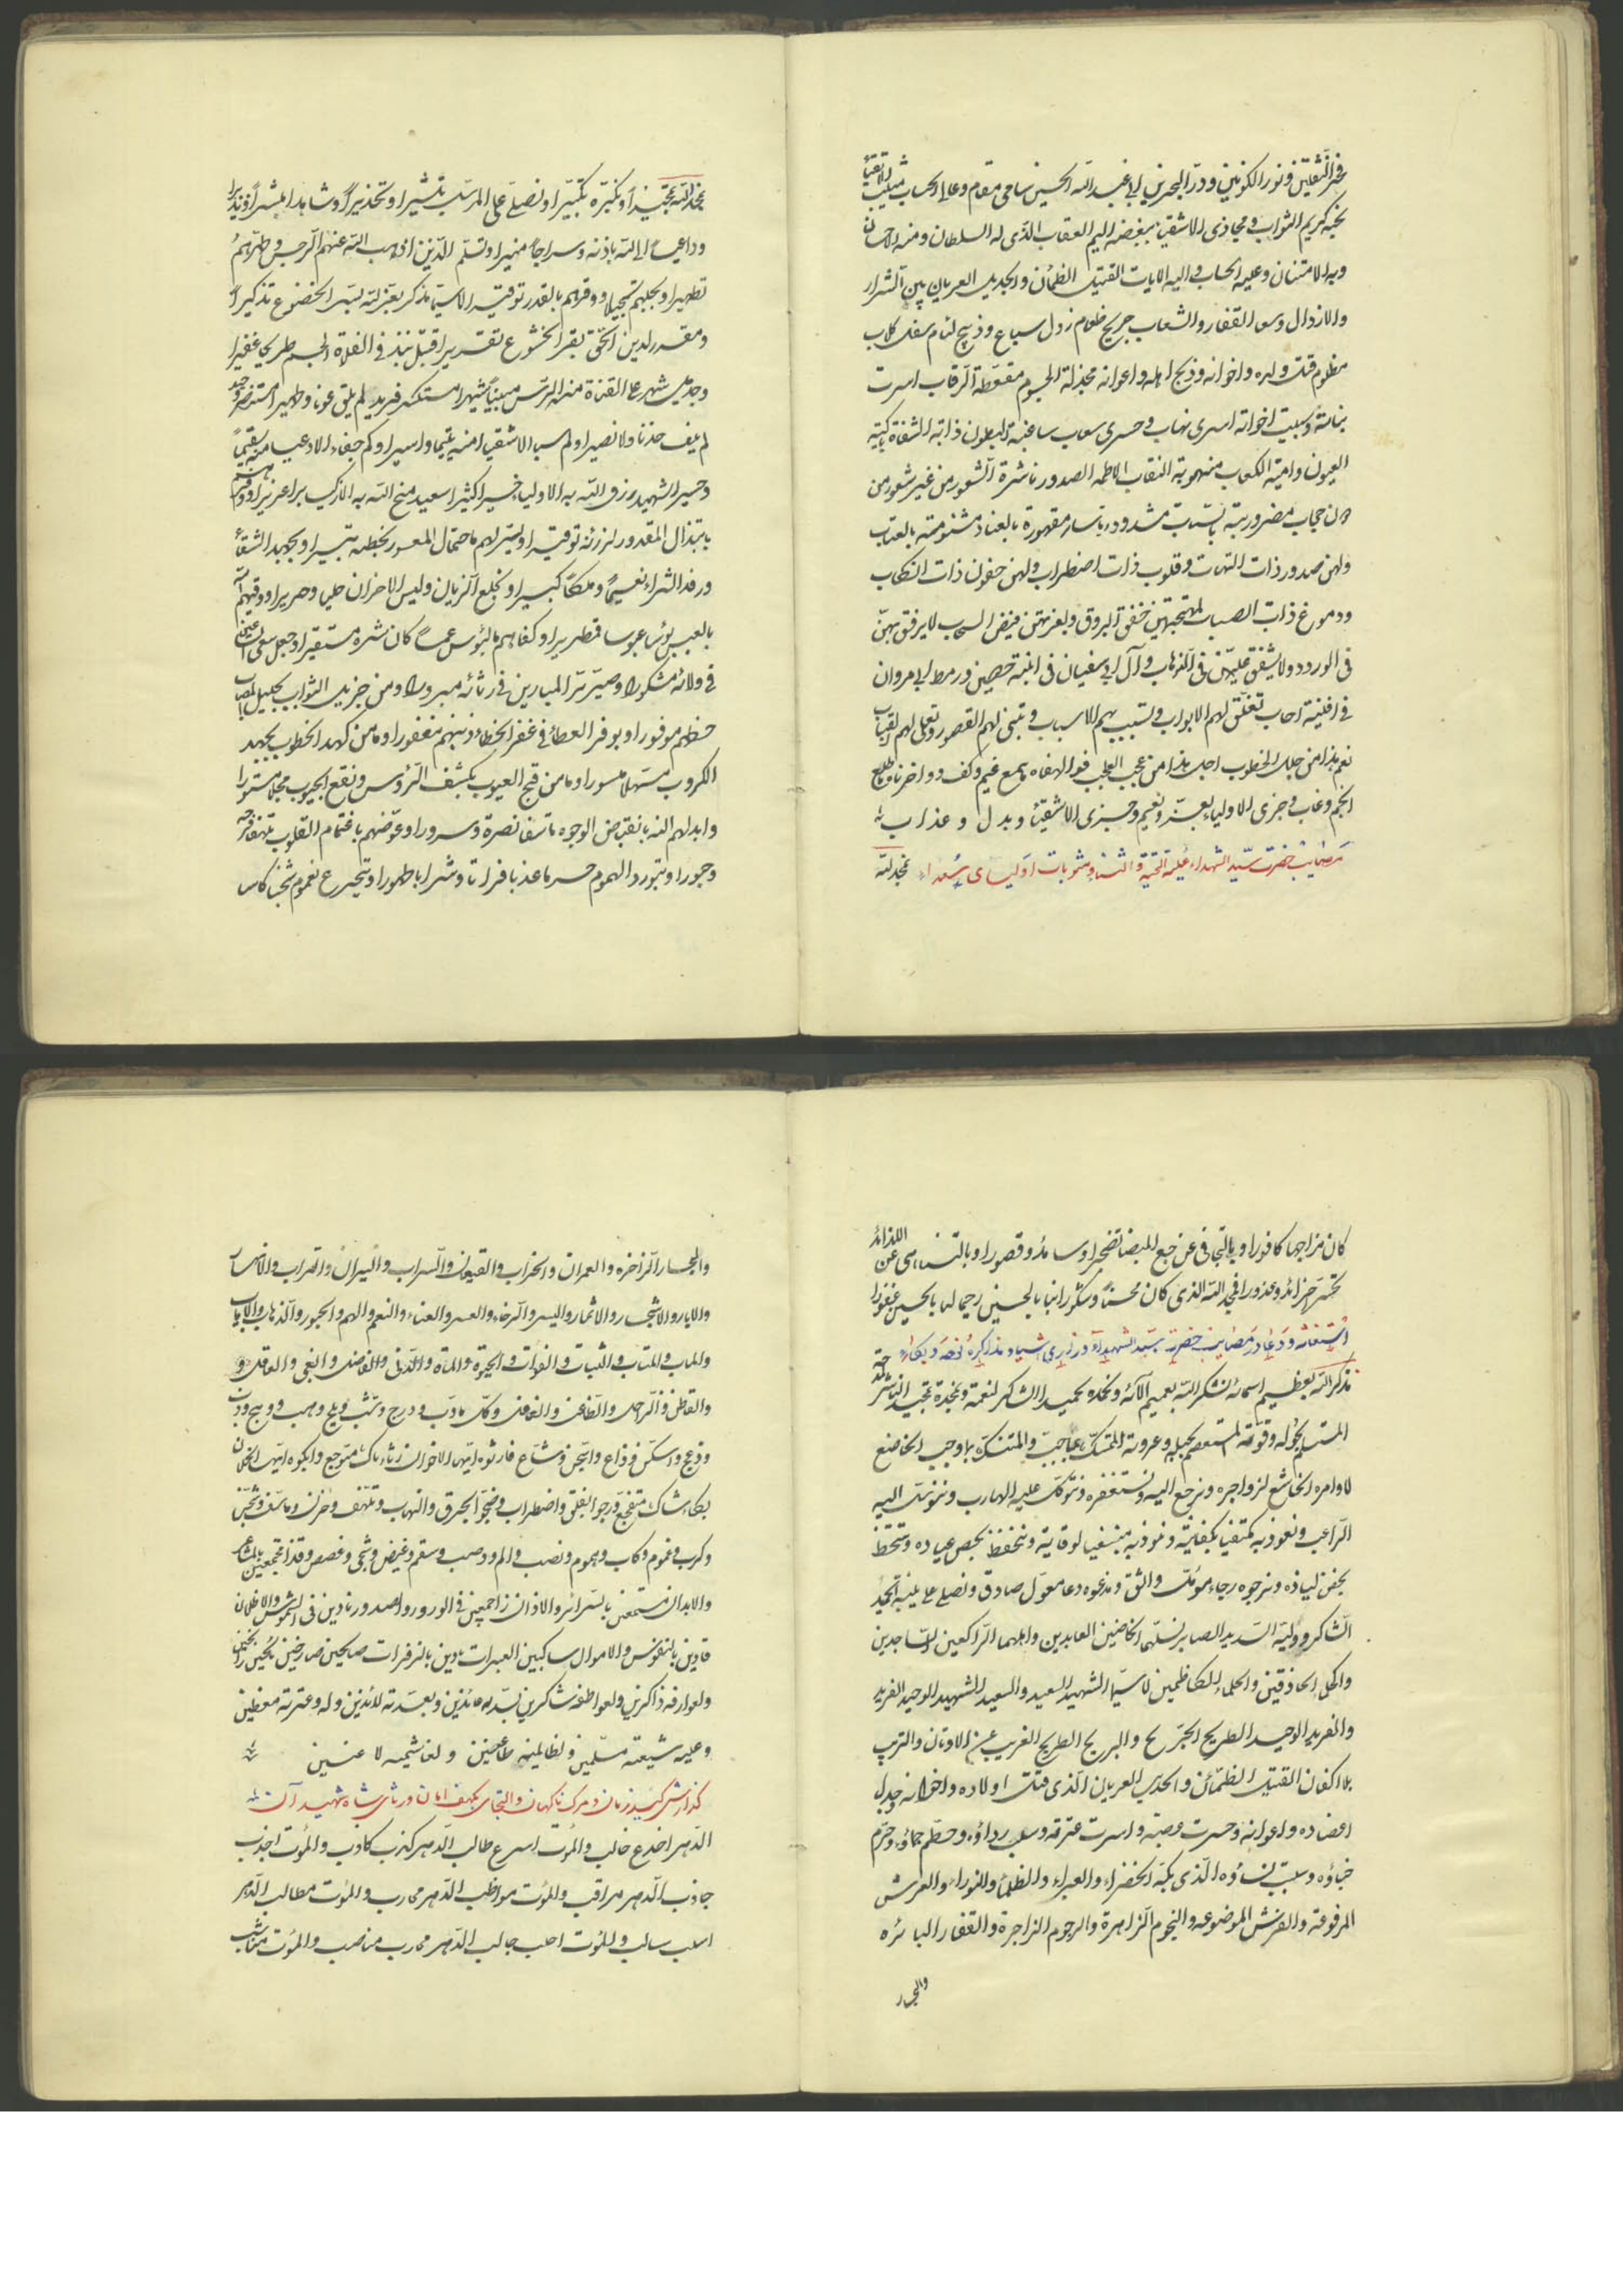 فخر الثقلين ونور الكونين ودر البحرين ابي عبد الله الحسين سامي مقام وعالي
بحبه كريم الثواب ومجازى الاشقياء ببغضه اليم العقاب الذى له السلطان ومنه الاحسان
وبه الامتنان وعليه الحساب واليه الاياب القتيل الظمآن والجديل العريان بين الشرار
والارذال وسط القفار والشعاب جريح طغام رذل سباع وذبيح لئام سفل كلاب
مظلوم قتل ولده واخوانه وذبح اهله واعوانه مجدلة الجسوم مقطعة الرقاب اسرت
بناته وسبيت اخواته اسرى نهاب وحسرى سعاب ساغبة البطون ذابة الشفاة باكية
العيون دامية الكعاب منهوبة النقاب لاطمة الصدور ناشرة الشعور من غير شعور من
دون حجاب مضروبة بالسياط مشدودة باسار مقهورة بالعناد مشتومة بالعتاب
ولهن صدور ذات التهاب وقلوب ذات اضطراب ولهن جفون ذات انسكاب
ودموع ذات انصباب لمهجتهن خفق البروق ولعزتهن فيض السحاب لا يرفق بهن
فى الورود ولا يشفق عليهن فى الذهاب وآل ابي سفيان فى ابنية حصين ورهط ابي مروان
في افنية رحاب تغلق لهم الابواب وتسبب بهم الاسباب وتبنى لهم القصور وتعلى لهم القباب
نعم هذا من جلل الخطوب اجل هذا من عجب العجاب فوا لهفاه ما همع غيم وكف ووا حزناه ما طلع
انجم وغاب وجزى الاولياء بعز ونعيم وجزى الاشقياء وبدل وعذاب
مصايب حضرت سيد الشهداء عليه التحية والثناء ومثوبات اولياى سعداء نحمد الله
نحمد الله تمجيدا ونكبره تكبيرا ونصلي على المرسل تبشيرا وتحذيرا وشاهدا ومبشرا ونذيرا
وداعيا الى الله باذنه وسراجا منيرا ونسلم الذين اذهب الله عنهم الرجس وطهرهم
تطهيرا وبجلهم تبجيلا ووقرهم بالقدر توقيرا لا سيما مذكر بعزلته يسر الخضوع تذكيرا
ومقرر لدين الحق بقر الخشوع تقريرا قتيل نبذ في الفلاة الجسم طريحا عفيرا
وجديل شهر على القناة منه الرأس مبينا شهيرا مستكسر فريد لم يلق عونا وظهيرا مستنصر وحيد
لم يلف خدنا ولا نصيرا ولم سبا الاشقياء منه يتيما واسيرا وكم جفاء الادعياء منه سقيما
وحسيرا شهيد رزق الله به الاولياء خيرا كثيرا سعيد منح الله به الازكياء برا عزيرا
بابتذال المقدور لرزئه توقيرا ويسر لهم ما حتمال المعسور لخطبه تيسيرا
ورفد الثراء نعيما وملكا كبيرا وبخلع الزيان ولبس الاحزان حليا وحريرا ووقيهم
بالعبس بؤسا عبوسا قمطريرا وكفاهم بالبؤس عما كان شره مستطيرا وجعل سعى
في ولائه مشكورا وصير بر المبارين في رثائه مبرورا ومن جزيل الثواب بجليل المصاب
حظهم موفورا وبوفر العطاء في غفر الخطاء ذنبهم مغفورا وما من كهد الخطوب بجهد
الكروب مسهلا ميسورا وما من قبح العيوب بكشف الرؤس ونقع الجيوب مجللا مستورا
وابدلهم الله بانقباض الوجوه ما تسفا نضرة وسرورا وعوضهم باغتمام القلوب تلهفا فرحة
وحبورا وبتورد الهموم حسرة ماء عذبا فراتا وشرابا طهورا وبتجرع غموم شجنا كاسا
كان مزاجها كافورا وبالتجافى عن ضجع المضاجع تضجرا وسائد وقصورا وبالتناهى عن اللذائذ
تحسرا جزائد وعذورا فحمد الله الذى كان محسنا وشكورا بنا بالحسين رحيما لها بالحسين غفورا
استغاثه ودعا در مصايب حضرت سيد الشهداء وزارى اشياء ومذاكره نوحه وبكاء
نذكر الله بعظيم اسمائه نشكر الله بعميم آلائه ونحمده تحميد الشاكر لنعمه ونمجده تمجيد الناشر
المستسلم بحوله وقوته المستعصم بحبله وعروته المتمسك بما يجب والمتنسك بما وجب الخاضع
لاوامره الخاشع لزواجره ونرجع اليه ونستغفره ونتوكل عليه الهارب ونتوسل اليه
الراغب ونعوذ به مكتفيا بكفايته ونلوذ به مبتغيا لوقايته ونتحفظ بحصن عياده ونستحفظ
بحفن لياذه ونرجوه رجاء مؤمل واثق وندعوه دعا معول صادق ونصلي على نبيه الحميد
الشاكر ووليه السديد الصابر نسلم الخاضعين العابدين واهلها الراكعين الساجدين
والحكماء الحاذقين والحلماء الكاظمين لا سيما الشهيد السعيد والسعيد الشهيد الوحيد الفريد
والفريد الوحيد الطريح الجريح والجريح الطريح الغريب عن الاوطان والترب
بلا اكفان القتيل الظمآن والجديل العريان الذى قتلت اولاده واخوانه وجدل
اعضاده واعوانه وحسرت عصبته واسرت عترته وسلب رداؤه وحطم حماؤه وخرم
خباؤه وسبيت نساؤه الذى بكته الخضراء والغبراء والظلماء والنوراء والعرش
المرفوعة والفرش الموضوعة والنجوم الزاهرة والرجوم الزاجرة والقفار البائره
والبحار
والبحار الزاخره والعمران والخراب والقيعان والسراب والنيران والتراب والانهار
والابار والاشجار والاثمار واليسر والرخاء والعسر والعناء والنعم والهم والحبور والذهاب والاياب
والماب والمتاب والثبات والفوات والحيوة والممات والدنى والفاضل والغبى والعاقل و
والقاطن والراحل والظاعن والغافل وكل مادب ودرج وشب وبلج وهب
فارثوه ايها الاخوان رثاء باك متوجع وابكوه ايها الخلان
بكاء شاك متفجع وجوا بقلق واضطراب وضجوا بحرق والتهاب وتلهف وحزن وتاسف وشجن
وكرب وغموم وكاب وهموم ونصب والم ووصب وسقم وغيض وشجى وغصص وقذا مجتمعين بالمشاعر
والابدان مستمعين بالسرائر والاذان زاحمين في الورود والصدور نادين فى الشموس والاظلال
فادين بالنفوس والاموال ساكبين العبرات نادبين بالزفرات صايحين صارخين
ولعوارفه ذاكرين ولعواطفه شاكرين بسدته عائذين وبعدته لائذين وله وعترته معظمين
وعليه شيعته مسلمين ولظالميه طاعنين ولغاشميه لاعنين
كذارش كيد زمان ومرك ناكهان والتجاى بكهف امان ورثاى شاه شهيدآن
الدهر اخدع خالب والموت اسرع طالب الدهر كذب كاذب والموت اجذب
جاذب الدهر مراقب والموت مواظب الدهر محارب والموت مطالب الدهر
اسلب سالب والموت احلب جالب الدهر محارب مناصب والموت